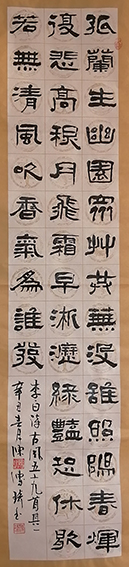 孤蘭生幽園眾艸共無沒雖照陽春暉
復悲高秋月飛霜早淅瀝綠豔恐休歇
若無清風吹香氣為誰發
李白詩古風五十九首其一
辛丑春月陳書